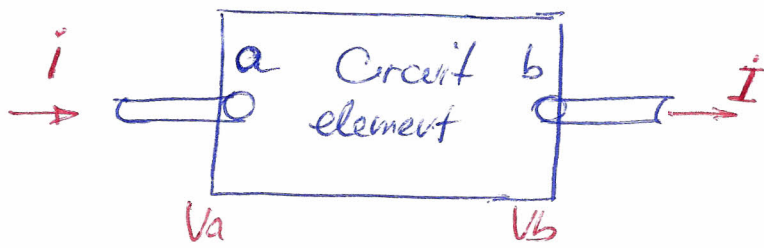 i
a Circuit b
element
I
Va Vb